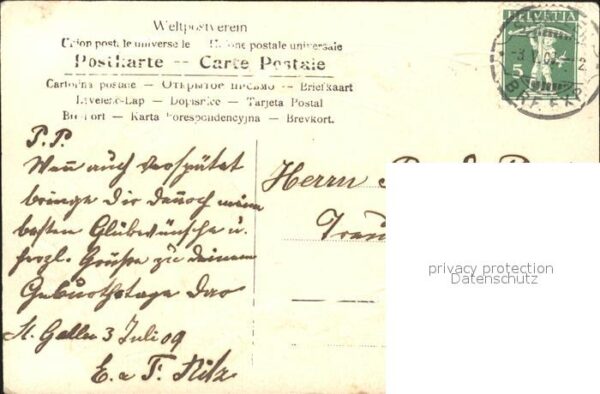 Weltpostverein
Union postale universelle -- Unione postale universale
Postkarte -- Carte Postale
Cartolina postale -- Открытое письмо -- Briefkaart
Levelező-Lap -- Dopisnice -- Tarjeta Postal
Brefkort - Karta korespondencyjna - Brevkort.
HELVETIA
5
BRF. EXP.
P.P.
Wenn auch verspätet
bringe Dir dennoch meine
besten Glükwünsche u.
herzl. Grüße zu deinem
Geburthstage dar
St. Gallen 3 Juli 09
E. & F.
Herrn
privacy protection
Datenschutz